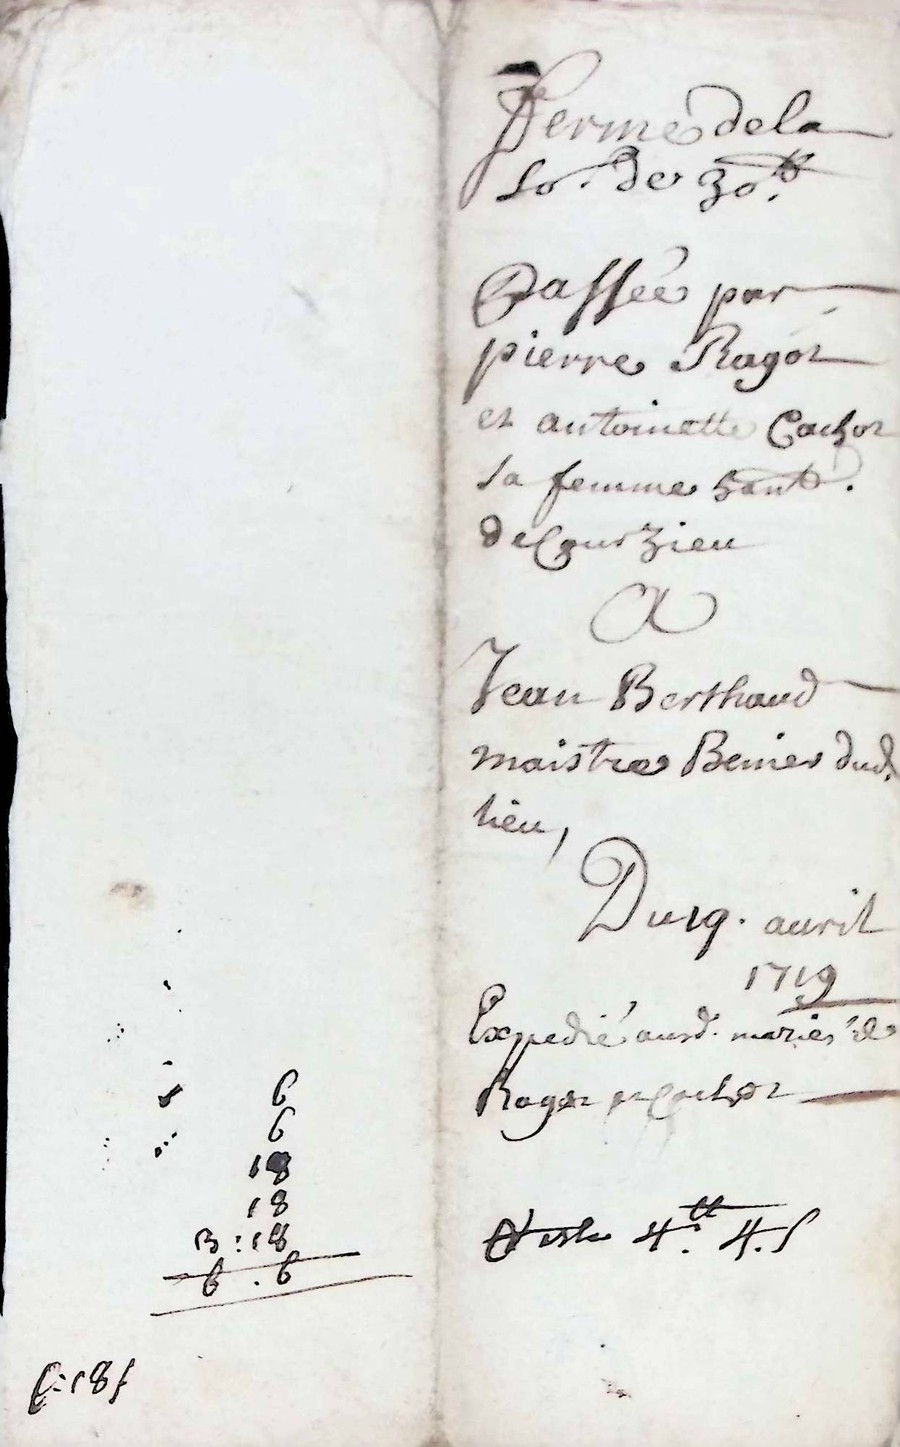 Ferme de la
So. de 30.tt
Passée par
pierre Ragot
et antoinette Cachot
sa femme
de Courzieu
A
Jean Berthaud
maistre dud.
lieu,
Du 19. auril
1719
Expedié ausd. mariés de
Ragot et Cachot
4.tt 4.s
6
6
18
18
3 : 18
6 . 6
18s